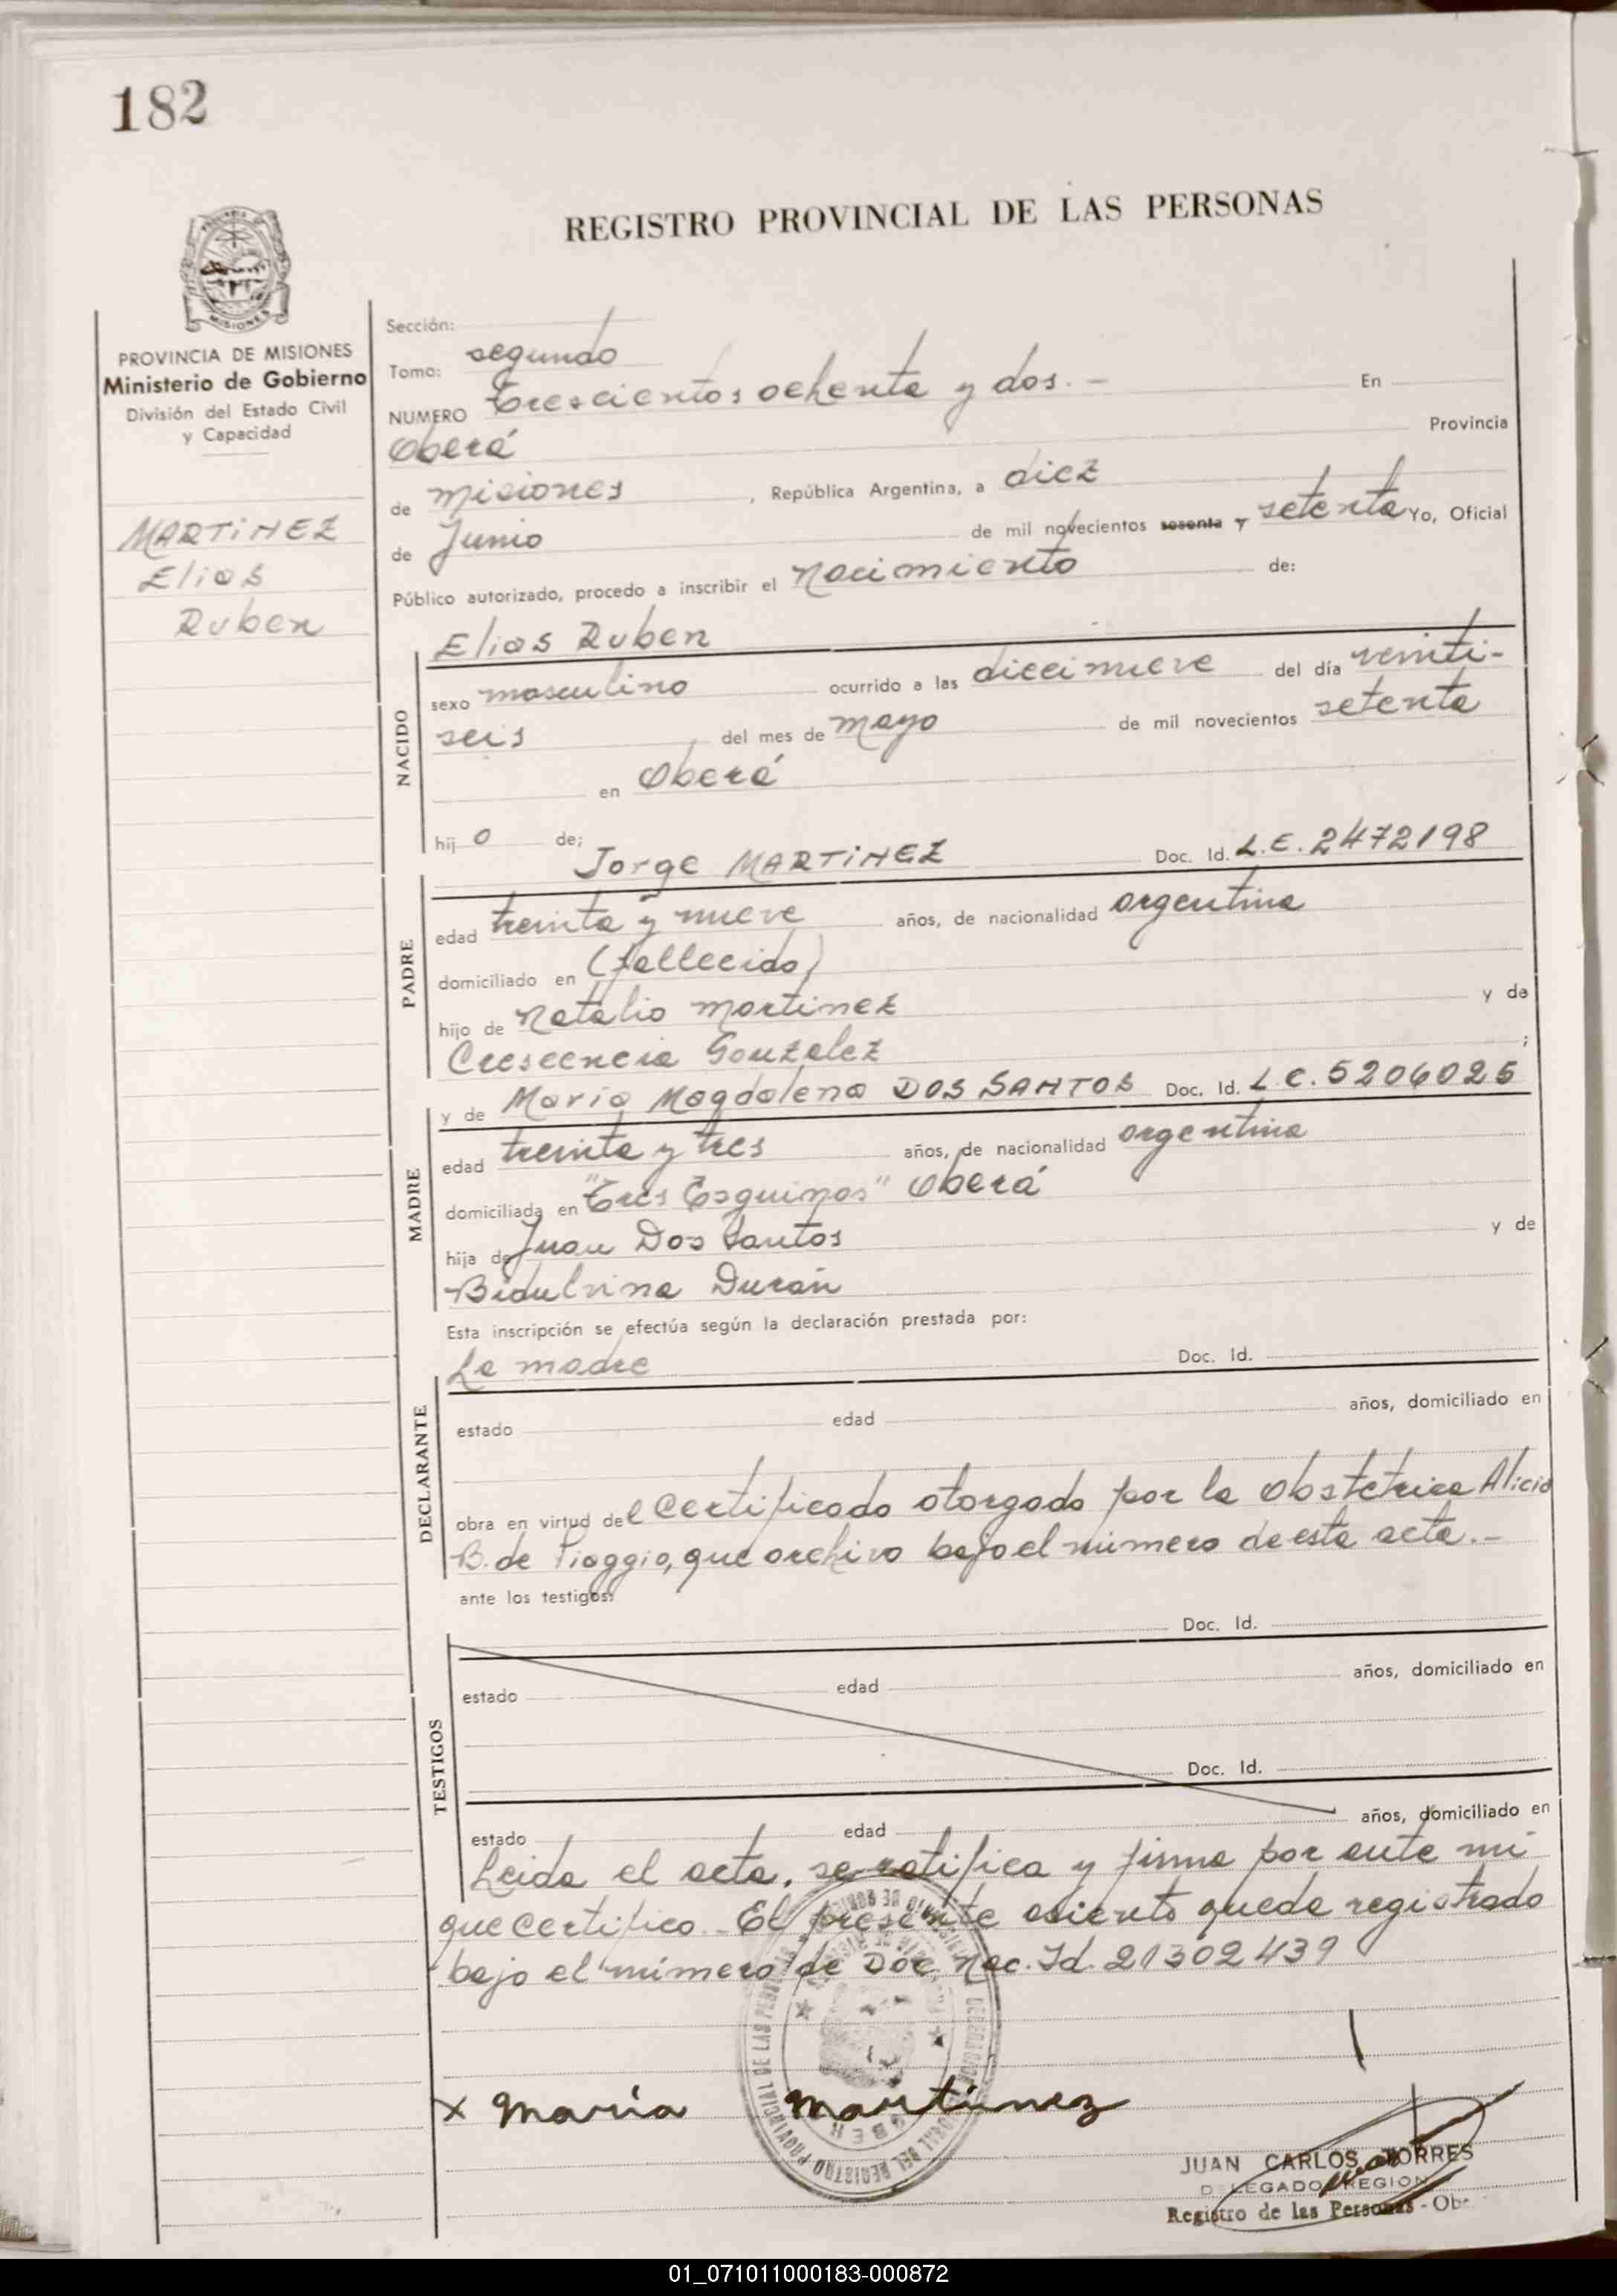 182
REGISTRO PROVINCIAL DE LAS PERSONAS
MISIONES
PROVINCIA DE MISIONES
Ministerio de Gobierno
División del Estado Civil
y Capacidad
MARTINEZ
Elias
Ruben
Sección:
Tomo: segundo
NUMERO Trescientos ochenta y dos.- En
Oberá Provincia
de Misiones, República Argentina, a diez
de Junio de mil novecientos sesenta y setenta Yo, Oficial
Público autorizado, procedo a inscribir el Nacimiento de:
Elias Ruben
NACIDO
sexo masculino ocurrido a las diecinueve del día veinti-
seis del mes de mayo de mil novecientos setenta
en Oberá
hij o de; Jorge MARTINEZ Doc. Id. L.E. 2472198
PADRE
edad treinta y nueve años, de nacionalidad argentina
domiciliado en (fallecido)
hijo de Natalio Martinez y de
Crescencia Gonzalez ;
y de Maria Magdalena DOS SANTOS Doc. Id. L.C. 5206025
MADRE
edad treinta y tres años, de nacionalidad argentina
domiciliada en "Tres Esquinas" Oberá
hija de Juan Dos Santos y de
Bidulvina Durán
Esta inscripción se efectúa según la declaración prestada por:
La madre Doc. Id.
DECLARANTE
estado edad años, domiciliado en
obra en virtud del Certificado otorgado por la Obstetrica Alicia
B. de Piaggio, que archivo bajo el número de esta acta.-
ante los testigos:
Doc. Id.
TESTIGOS
estado edad años, domiciliado en
Doc. Id.
estado edad años, domiciliado en
Leida el acta, se ratifica y firma por ante mi
que certifico.- El presente asiento queda registrado
bajo el número de Doc. Nac. Id. 21302439
x María Martinez
JUAN CARLOS TORRES
DELEGADO REGION
Registro de las Personas - Obe
01_071011000183-000872